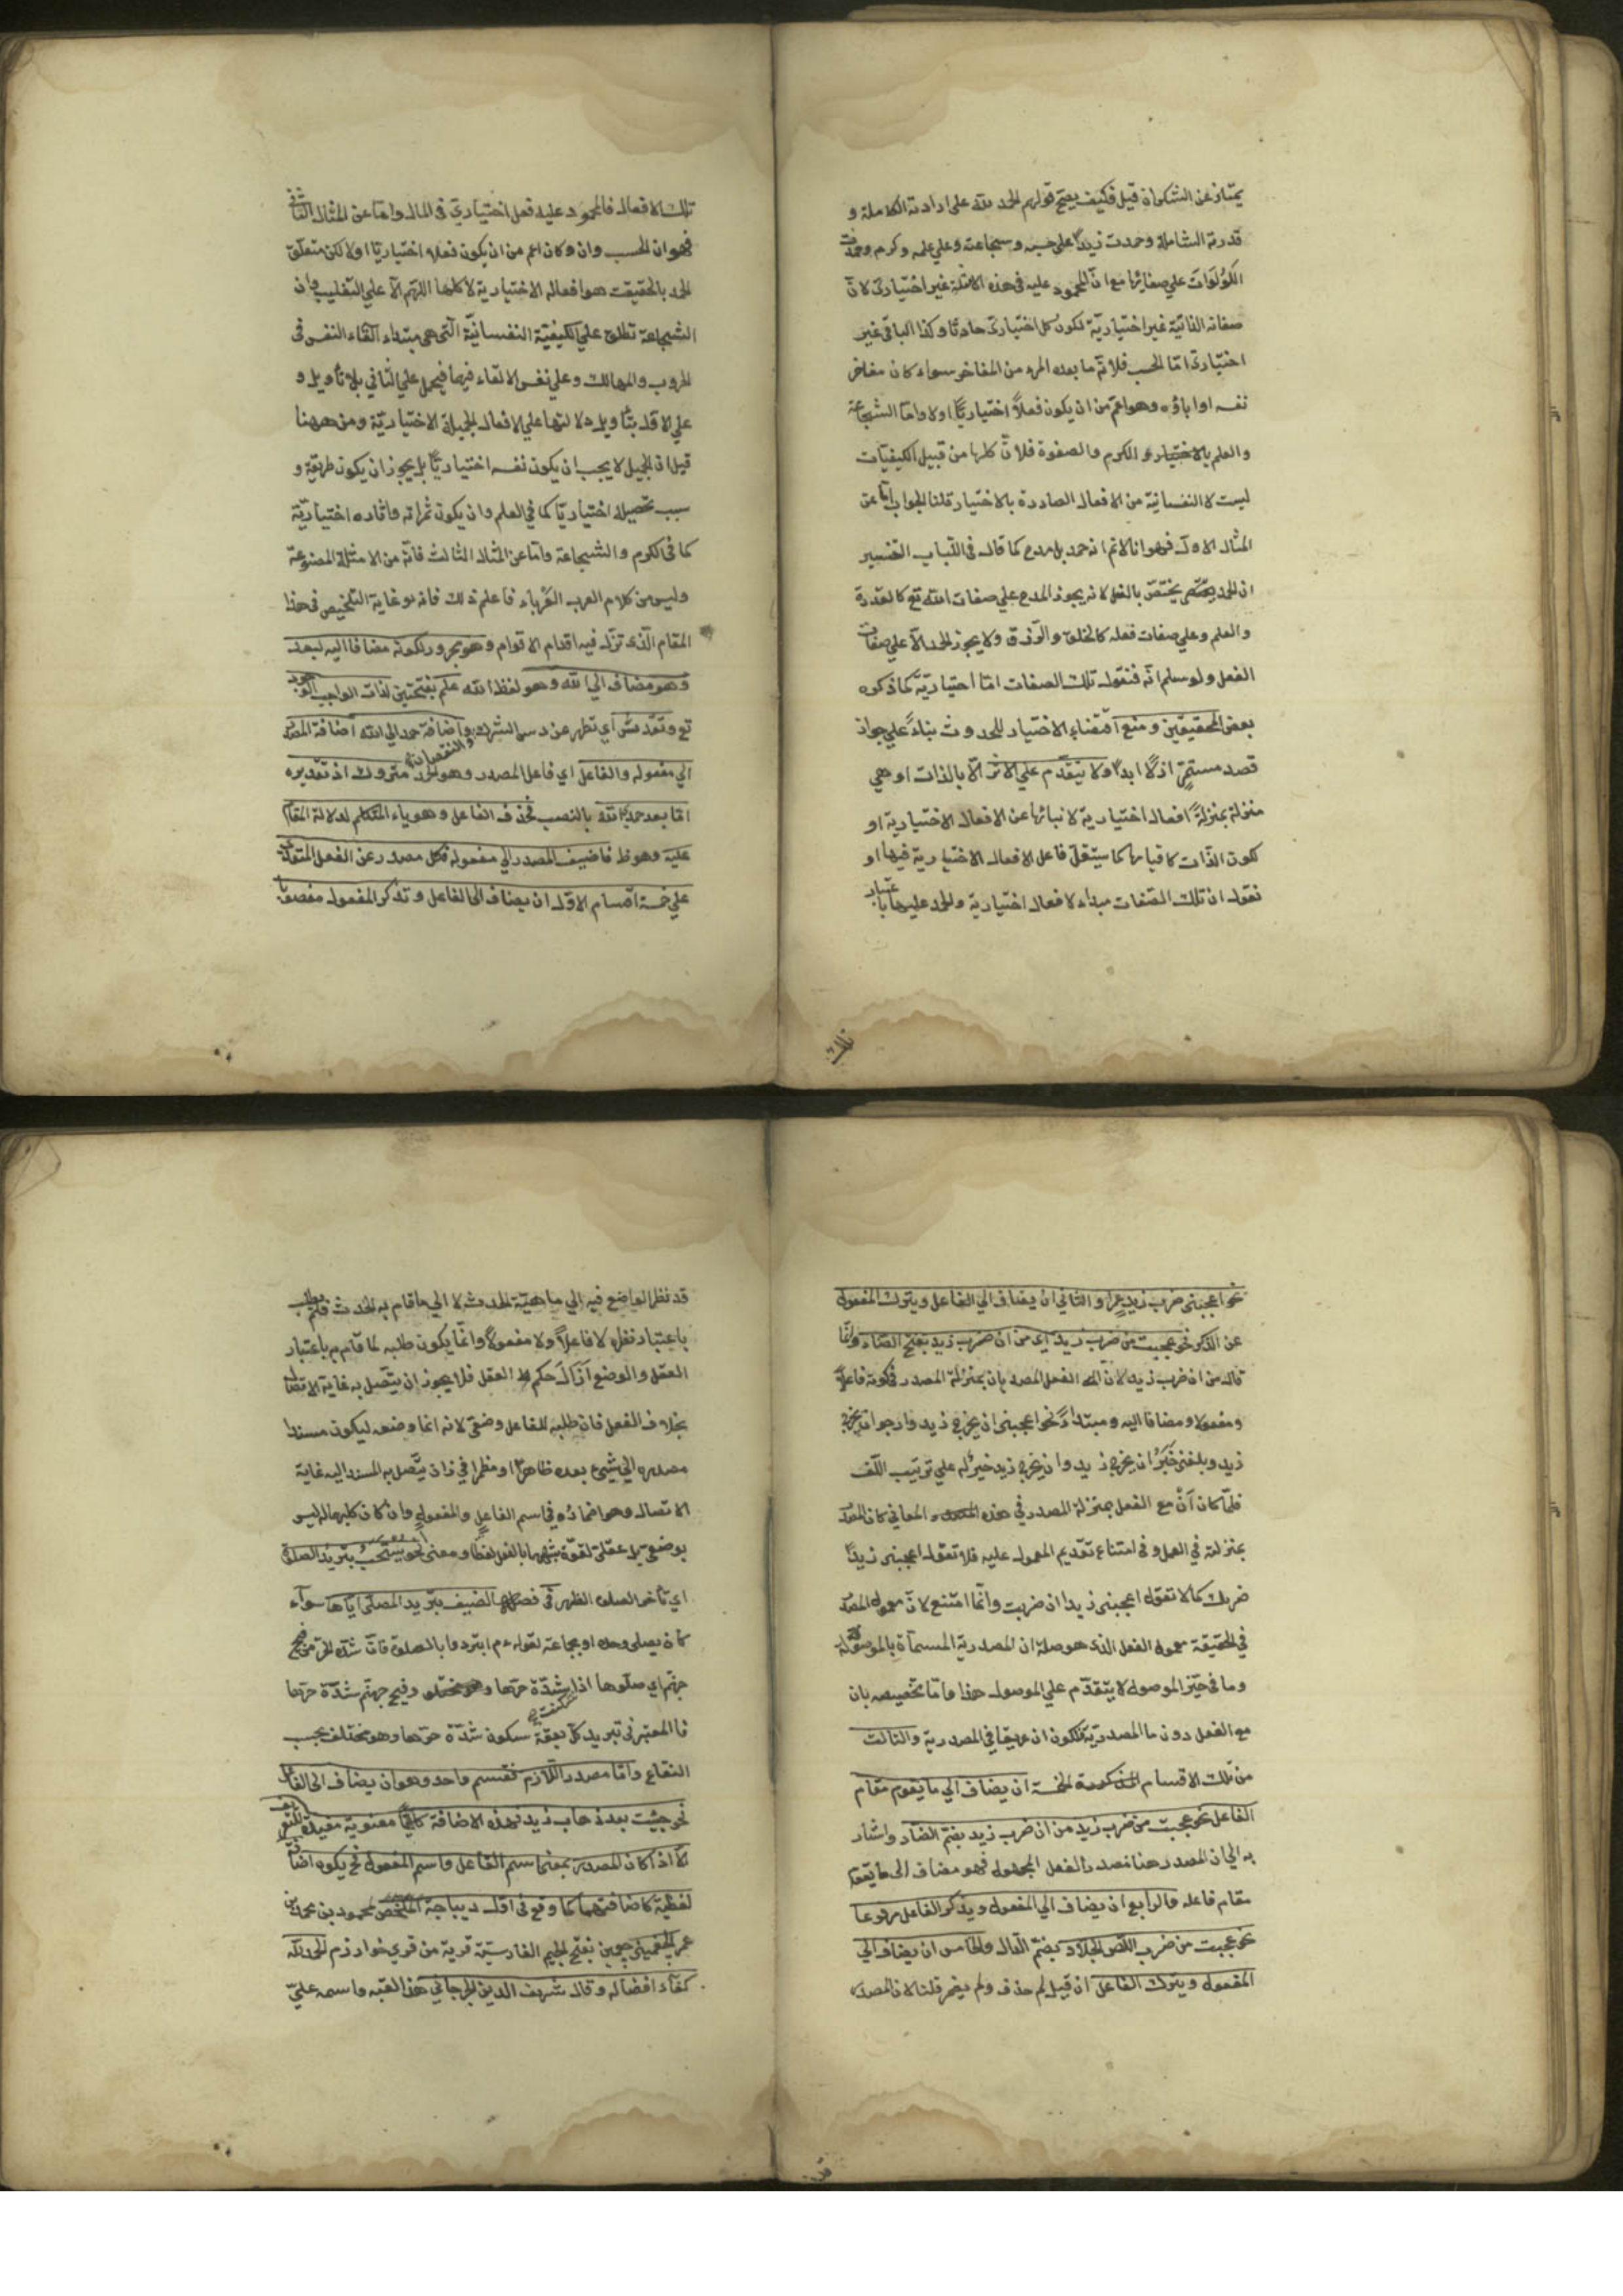 يمتاز عن الشكر ان قيل فكيف يصح قولهم الحمد لله على ارادته الكاملة و
قدرته الشاملة وحمدت زيدا على حسبه وشجاعته وعلى علمه وكرمه وحمدت
اللؤلؤات على صفائها مع ان المحمود عليه في هذه الامثلة غير اختياري لان
صفاته الذاتية غير اختيارية لكون كل اختياري حادثا وكذا الباقي غير
اختياري امّا الحسب فلانّه ما يعده المرء من المفاخر سواء كان مفاخر
نفسه او اباؤه وهو اعمّ من ان يكون فعلاً اختياريّاً اولا وامّا الشجاعة
والعلم والكرم والصفوة فلانّ كلها من قبيل الكيفيّات
ليست لا النفسانية من الافعال الصادرة بالاختيار قلنا الجواب امّا عن
المثال الاول فهو انا لانم انه حمد بل مدح كما قال في اللباب التفسير
ان الحمد يختصّ بالفعل لانه يجوز المدح على صفات الله تع كالقدرة
والعلم وعلى صفات فعله كالخلق والرّزق ولا يجوز الحمد الّا على صفات
الفعل ولو سلم انّه فنقول تلك الصفات امّا اختياريّة كما ذكره
بعض المحقيقين ومنع اقتضاء الاختيار للحدوث بناءً على جواز
قصد مستمرّ ازلاً ابداً ولا يتقدّم على الاثر الّا بالذات او هي
منزلة بمنزلة افعال اختيارية لانبائها عن الافعال الاختيارية او
لكون الذّات كافيا بها كما سيتقلّ فاعل الافعال الاختيارية فيها او
نقول ان تلك الصّفات مبداء لافعال اختيارية والحمد عليها باعتبار
تلك
تلك الافعال فالمحمود عليه فعل اختياريّ في المال وامّا عن المثال الثّاني
فهو ان الحسب وان وكان اعم من ان يكون فعلا اختياريّا اولا لكن متعلّق
الحمد بالحقيقت هو افعاله الاختيارية لا كلها اللّهمّ الّا على التّغليب وان
الشجاعة تطلق على الكيفيّة النفسانيّة الّتي هي مبداء القاء النفس في
الحروب والمهالك وعلى نفس الالقاء فيها فيحمل على الثاني بلا تأويل و
على الاول بتأويل دلالتها على الافعال الجميلة الاختياريّة ومن ههنا
قيل ان الجميل لا يجب ان يكون نفسه اختياريّاً بل يجوز ان يكون طريقة و
سبب تحصيله اختياريّا كما في العلم وان يكون ثمراته واثاره اختياريّة
كما في الكرم والشجاعة وامّا عن المثال الثالث فانّه من الامثلة المصنوعة
وليس من كلام العرب العرباء فاعلم ذلك فانه غاية التلخيص في هذا
المقام الّذي تزلّ فيه اقدام الاقوام وهو مجرور لكونه مضافا اليه لبعد
وهو مضاف الى الله وهو لفظ الله علم بفتحتين لذات الواجب الوجود
تع وتقدّس اي تطهر عن دسم الشرك والنقصان واضافة حمد الى الله اضافة المصدر
الى مفعوله والفاعل اي فاعل المصدر وهو متروك اذ تقديره
امّا بعد حمدي الله بالنصب فحذف الفاعل وهو ياء المتكلم لدلالة المقام
عليه وهو ط فاضيف المصدر الى مفعوله فكل مصدر عن الفعل المتعدّي
على خمسة اقسام الاوّل ان يضاف الى الفاعل وتذكر المفعول منصوبا
نحو اعجبنى ضرب زيد عمراً والثاني ان يضاف الى الفاعل ويترك المفعول
عن الذكر نحو عجبت من ضرب زيد اي من ان ضرب زيد بفتح الضاد وانّما
قال من ان ضرب زيد لانّ الفعل المصدر بان بمنزلة المصدر في كونه فاعلاً
ومفعولا ومضافا اليه ومبتدأً نحو اعجبنى ان يخرج زيد وارجو ان يخرج
زيد وبلغنى خَبَرُ ان يخرج زيد وان يخرج زيد خير له على ترتيب اللّف
فلمّا كان أنْ مع الفعل بمنزلة المصدر في هذه المعاني كان المصدر
بمنزلته في العمل وفي امتناع تقديم المعمول عليه فلا تقول اعجبنى زيداً
ضربك كما لا تقول اعجبنى زيدا ان ضربت وانّما امتنع لانّ معمول المصدر
في الحقيقة معمول الفعل الذى هو صلة ان المصدرية المسمّاة بالموصولة
وما في حيّز الموصول لا يتقدّم على الموصول هذا وامّا تخصيصه بان
مع الفعل دون ما المصدريّة لكون ان عريقا في المصدرية والثالث
من تلك الاقسام المذكورة الخمسة ان يضاف الى ما يقوم مقام
الفاعل نحو عجبت من ضرب زيد من ان ضرب زيد بضمّ الضاد واشار
به الى ان المصدر هنا مصدر الفعل المجهول فهو مضاف الى ما يقوم
مقام فاعله والرابع ان يضاف الى المفعول ويذكر الفاعل مرفوعا
نحو عجبت من ضرب اللّص الجلّاد بضمّ الدّال والخامس ان يضاف الى
المفعول ويترك الفاعل ان قيل لم حذف ولم يضمر قلنا لان المصدر
قد
قد نظر الواضع فيه الى ماهيّة الحدث لا الى ما قام به الحدث فلم يطلب
باعتبار نظره لا فاعلاً ولا مفعولاً وانّما يكون طلبه لما قام به باعتبار
العقل والوضع حكم العقل فلا يجوز ان يتّصل به غاية الاتصال
بخلاف الفعل فان طلبه للفاعل وضعّى لانه انما وضعه ليكون مسندا
مصدره الى شيئ بعده ظاهراً او مظمرا في ذان يتّصل به المسند اليه غاية
الاتصال وهو اضماره في اسم الفاعل والمفعول وان كان طلبهما له ليس
بوضعى بل عقلىّ لقوّة شبههما بالفعل لفظا ومعنى نحو يستحبّ بتريد الصلوة
اي تأخر الصلوة الظهر في فصل الصيف بتريد المصلّى ايّاها سوآء
كان يصلى وحده او بجماعة لقوله ء م ابتردوا بالصلوة فانّ شدّة الحرّ من فيح
جهنّم اي صلّوها اذا سكنت شدّة حرّها وفيح جهنّم شدّة حرّها
فا المعتبر في تبريد كلّ بقعة سكون شدّة حرّها وهو مختلف بحسب
البقاع وامّا مصدر اللازم فقسم واحد وهو ان يضاف الى الفاعل
نحو جئت بعد ذهاب زيد فهذه الاضافة كلّها معنوية مفيدة للتعريف
الّا اذا كان المصدر بمعنى اسم الفاعل واسم المفعول فح يكون اضافته
لفظيّة كاضافتهما كما وقع في اوّل ديباجة الملخّص لمحمود بن محمد بن
عمر الجغمينى جغمين بفتح الجيم الفارسيّة قرية من قرى خوارزم الحمد لله
كفآء افضاله وقال شريف الدين الجرجاني هذا لقبه واسمه علىّ